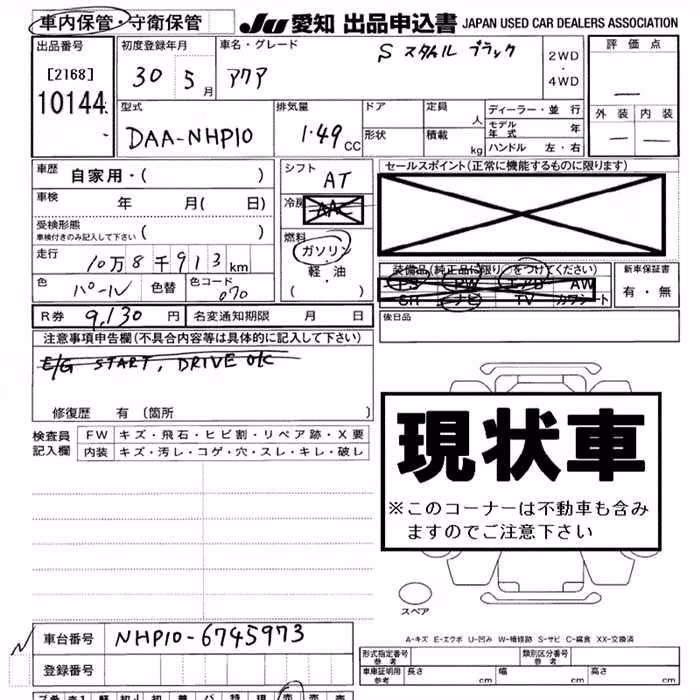 車内保管・守衛保管 JU 愛知 出品申込書 JAPAN USED CAR DEALERS ASSOCIATION
出品番号 初度登録年月 車名・グレード 評価点
[2168] 30 5月 アクア S スタイル ブラック 2WD・4WD
10144 外装 内装
型式 排気量 ドア 定員 人 ディーラー・並行
DAA-NHP10 1.49 CC 形状 積載 kg モデル年式 年
ハンドル 左・右
車歴 自家用・( ) シフト AT セールスポイント(正常に機能するものに限ります)
車検 年 月( 日) 冷房 AA
受検形態 ( )
車検付きのみ記入して下さい
燃料 ガソリン・軽・油 ( )
走行 10万8千913km
装備品(純正品に限り○をつけてください) 新車保証書
色 パール 色替 色コード 070 PS PW エアB AW 有・無
SR ナビ TV カワシート
R券 9,130円 名変通知期限 月 日 後日品
注意事項申告欄(不具合内容等は具体的に記入して下さい)
E/G START, DRIVE OK
修復歴 有 (箇所 )
検査員記入欄 FW キズ・飛石・ヒビ割・リペア跡・X要
内装 キズ・汚レ・コゲ・穴・スレ・キレ・破レ
現状車
※このコーナーは不動車も含み
ますのでご注意下さい
スペア
A-キズ E-エクボ U-凹み W-補修跡 S-サビ C-腐食 XX-交換済
車台番号 NHP10-6745973
形式指定番号 参考 類別区分番号 参考
登録番号 車庫証明用 参考 長さ cm 幅 cm 高さ cm